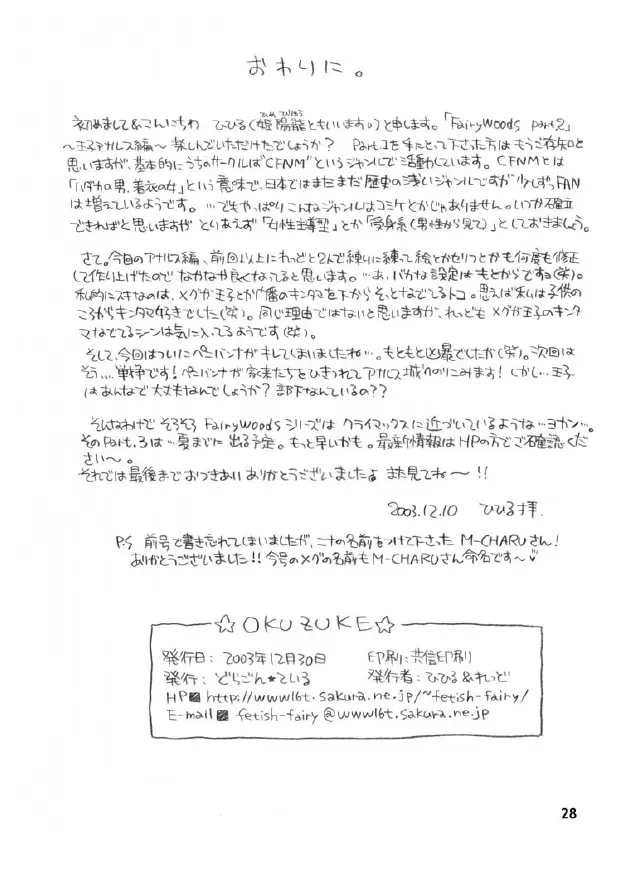 おわりに。
初めまして&こんにちわ ひひる(姫陽龍ともいいます。)と申します。「FairyWoods part2」
～王子アカルス編～ 楽しんでいただけたでしょうか? Part.1を手にとって下さった方はもうご存知と
思いますが、基本的にうちのサークルは"CFNM"というジャンルで活動しています。CFNMとは
「ハダカの男、着衣の女」という意味で、日本ではまだまだ歴史の浅いジャンルですが少しずつFAN
は増えているようです。…でもやっぱりこんなジャンルはコミケとかじゃありません。いつか確立
できればと思いますが とりあえず「女性主導型」とか「受身系(男性から見て)」としておきましょう。
さて。今回のアカルス編、前回以上にれっどと2人で練りに練って絵とかセリフとかも何度も修正
して作り上げたので なかなか良くなってると思います。…あ、バカな設定はもとからですョ(笑)。
私的にスキなのは、メグが王子とか八番のキンタマを下からそっとなでてるトコ。思えば私は子供の
ころからキンタマ好きでした(笑)。同じ理由ではないと思いますが、れっどもメグが王子のキンタ
マなでてるシーンは気に入ってるようです(笑)。
そして、今回はついにペニバンナがキレてしまいましたね…。もともと凶暴でしたが(笑)。次回は
そう…戦争です!ペニバンナが家来たちをひきつれてアカルス城へのりこみます! しかし…王子
はあんなで大丈夫なんでしょうか?部下なんているの??
そんなわけで そろそろ FairyWoodsシリーズは クライマックスに近づいているような…ヨカン…。
そのPart.3は…夏までに出る予定。もっと早いかも。最新情報はHPの方でご確認くだ
さい～。
それでは最後までおつきあい ありがとうございましたよ また見てね～!!
2003.12.10 ひひる拝.
P.S 前号で書き忘れてしまいましたが、ニナの名前をつけて下さった M-CHARUさん!
ありがとうございました!! 今号のメグの名前も M-CHARUさん命名です～♥
☆OKUZUKE☆
発行日: 2003年12月30日 印刷: 共信印刷
発行: どらごん★ている 発行者: ひひる&れっど
HP http://www16t.sakura.ne.jp/~fetish-fairy/
E-mail fetish-fairy@www16t.sakura.ne.jp
28